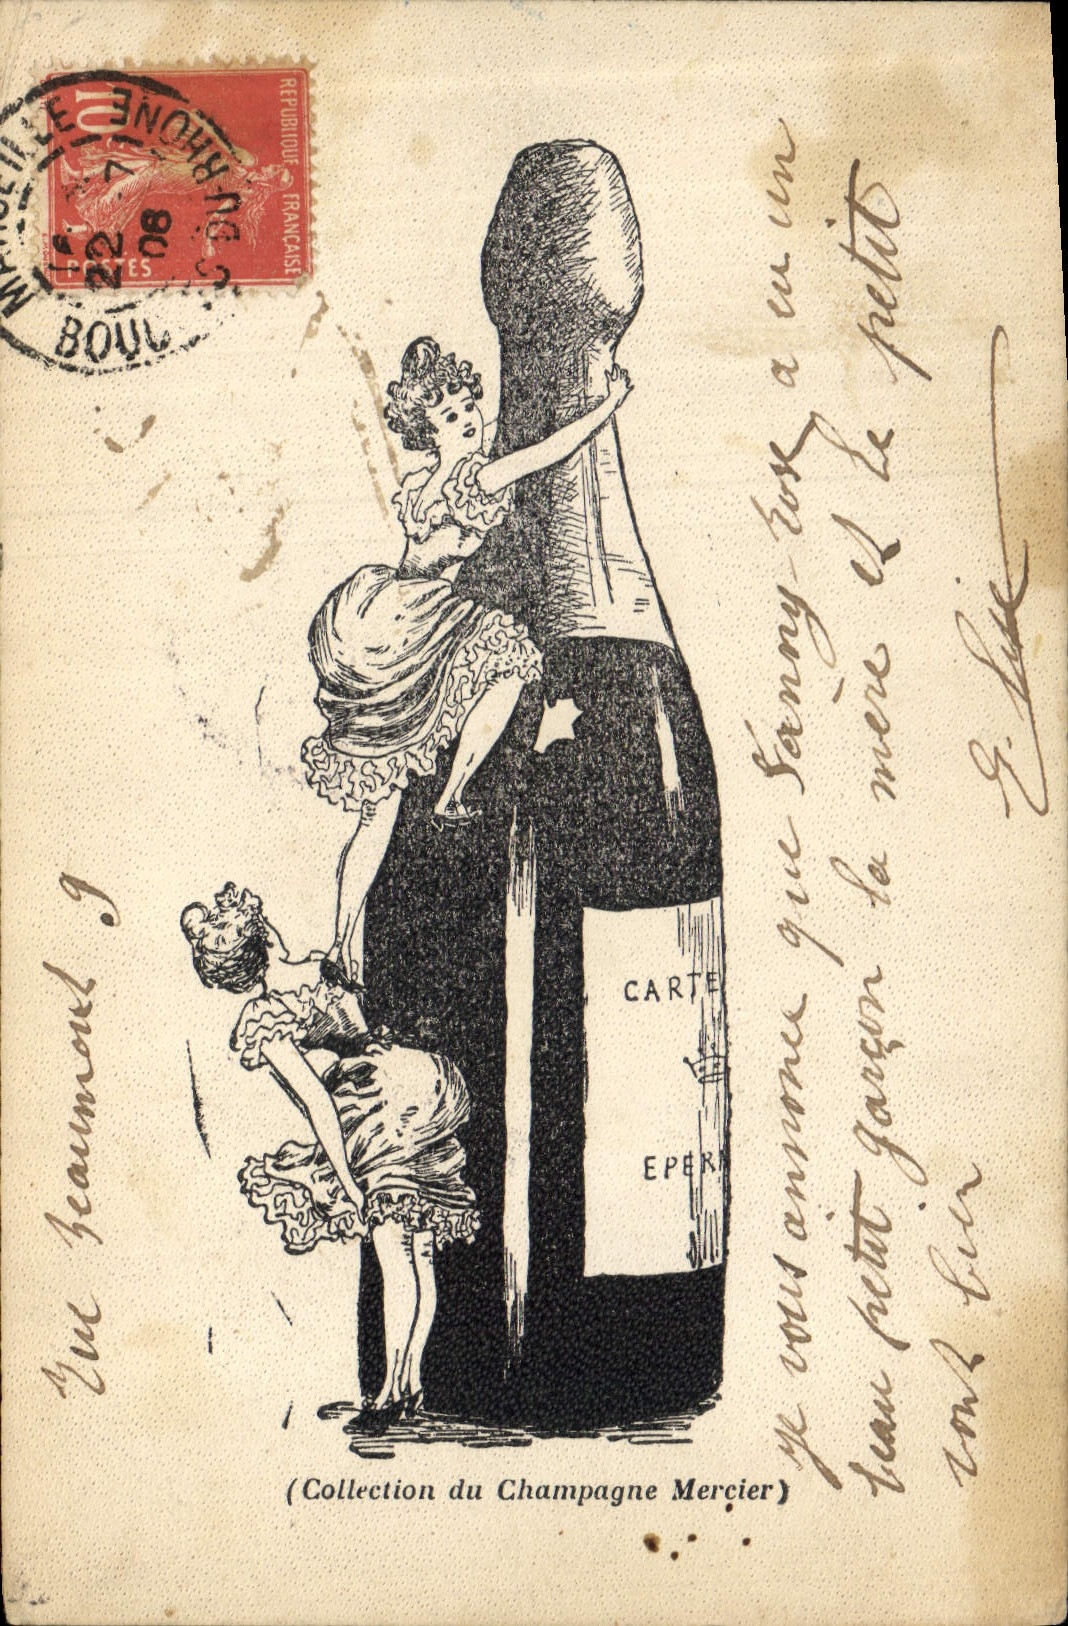 REPUBLIQUE FRANÇAISE
10
POSTES
MARSEILLE
BOUC DU RHONE
22 - 7
08
CARTE
EPER
(Collection du Champagne Mercier)
Je vous annonce que Fanny-Rose a eu un
beau petit garçon la mère et le petit
vont bien
Rue Beaumont 9